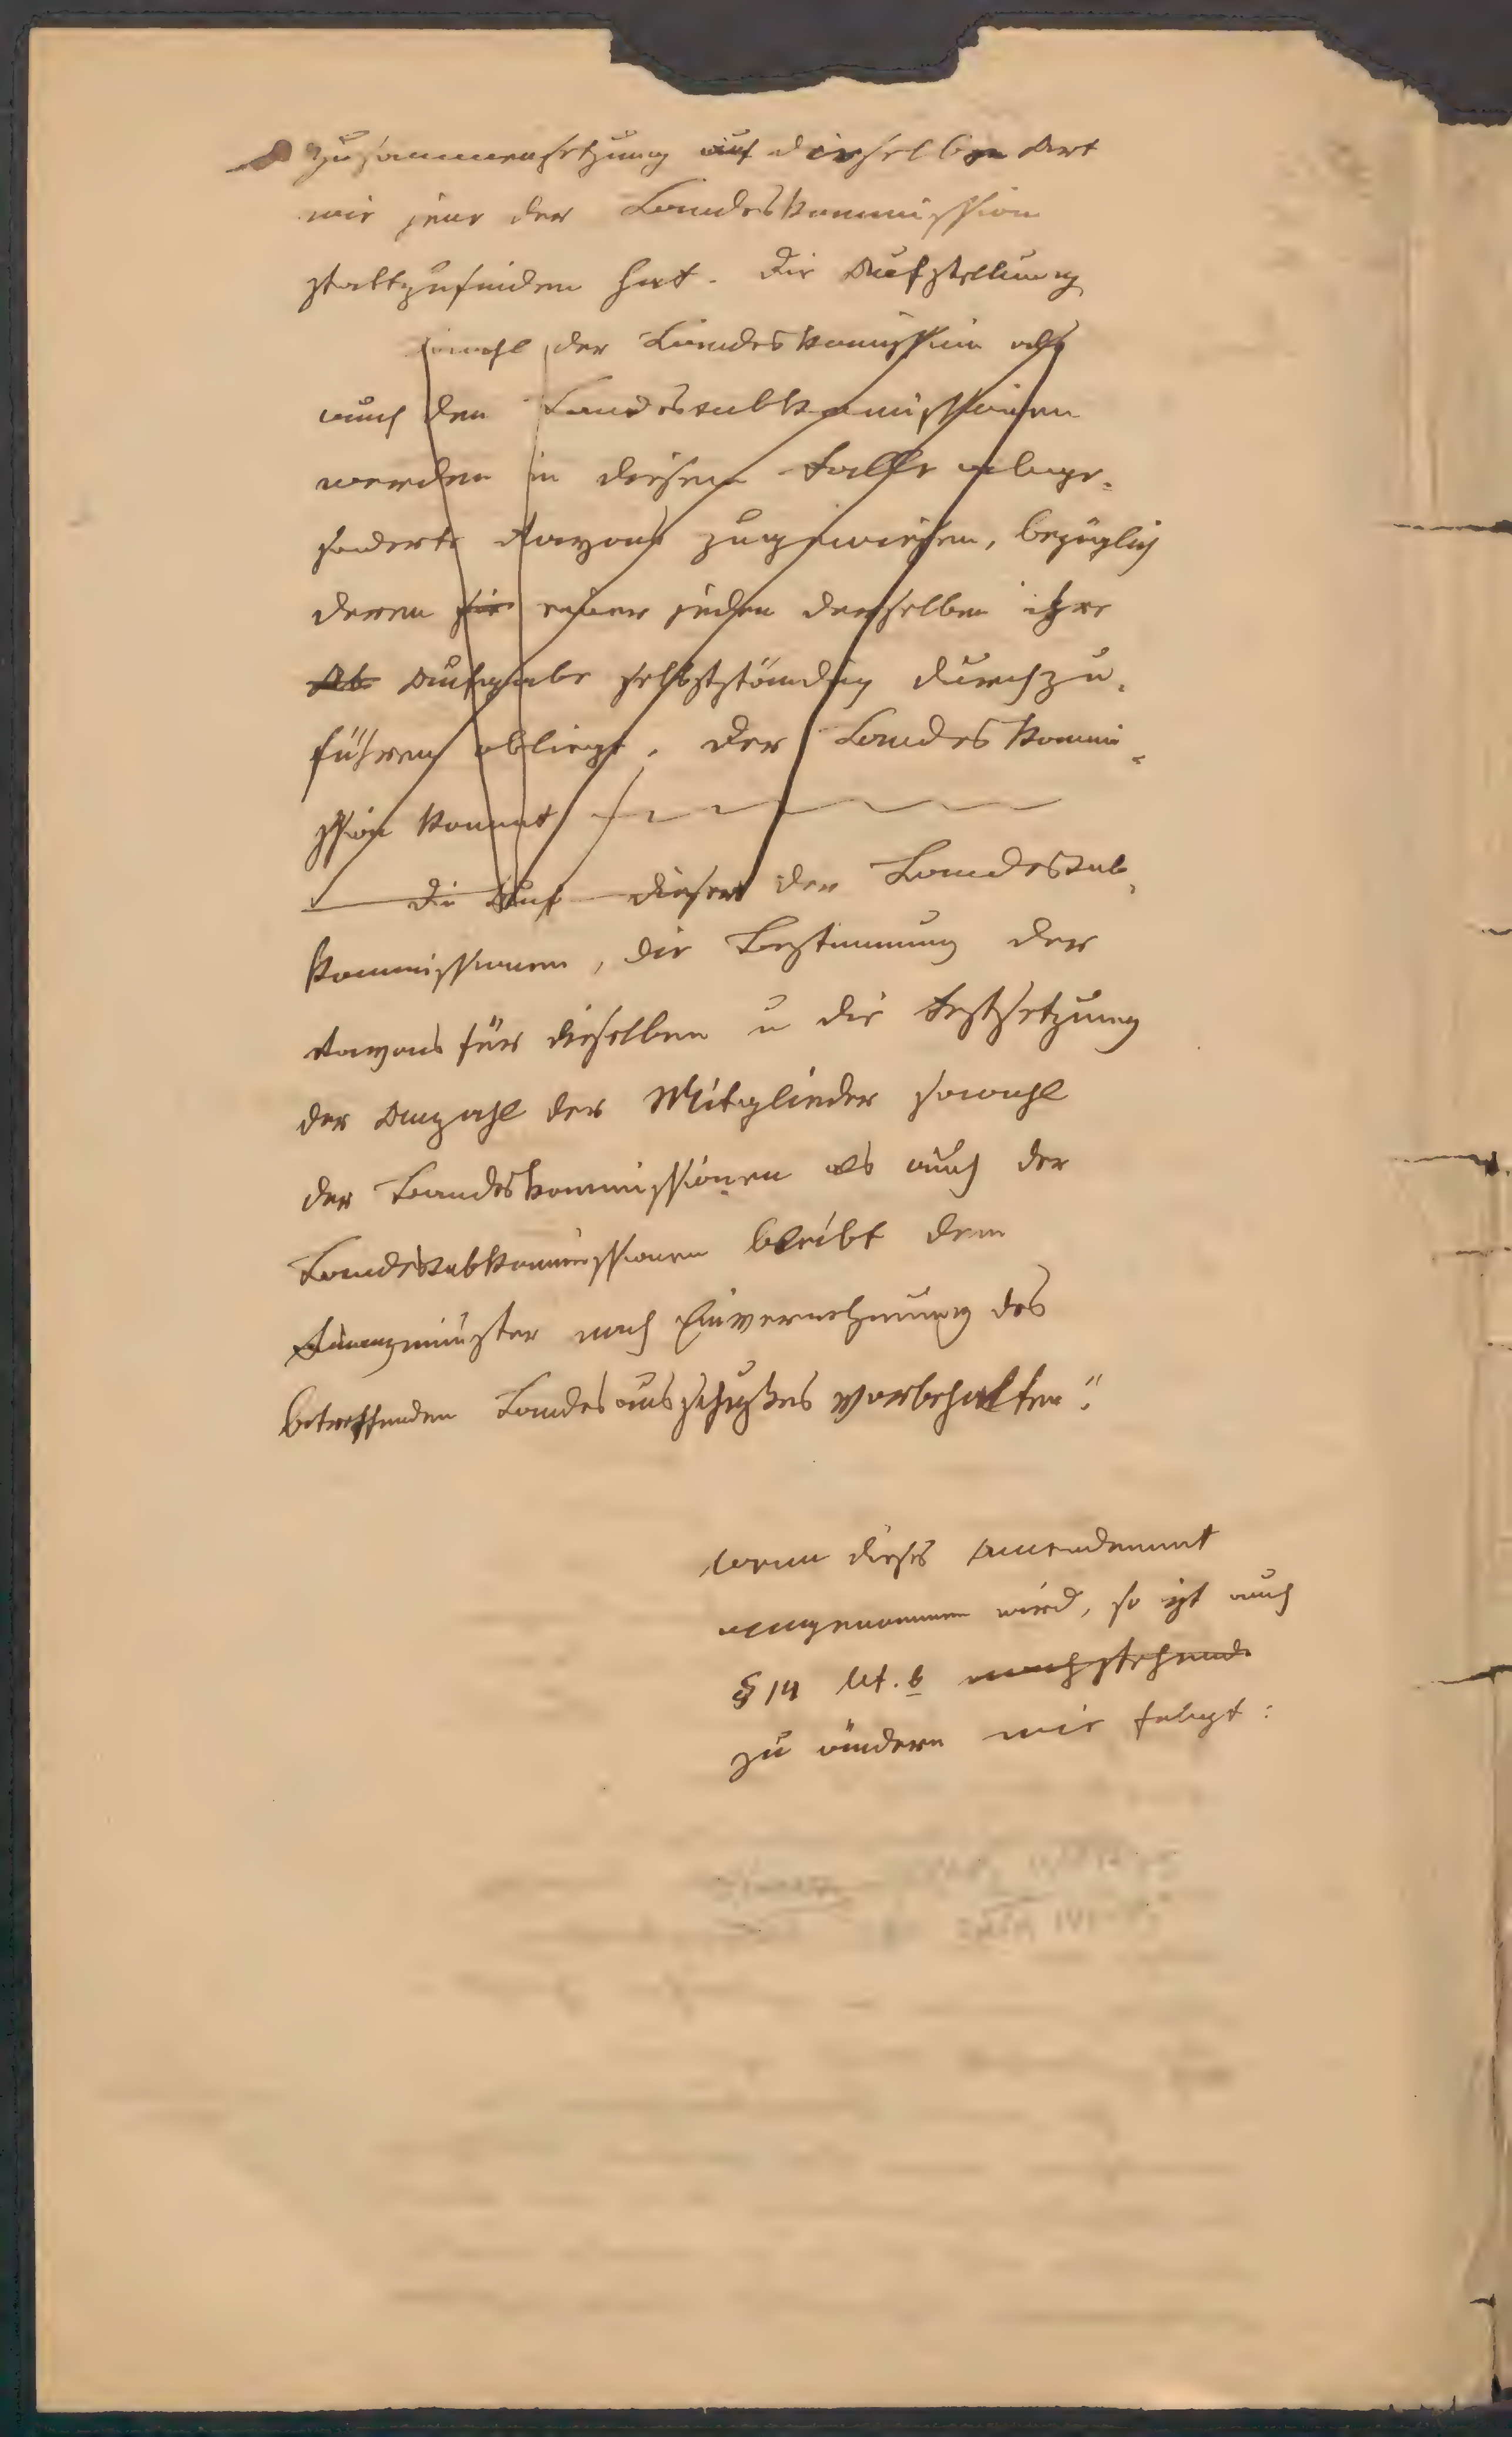 Zusammensetzung auf dieselbe Art
wie jene der Landeskommission
stattzufinden hat. Die Aufstellung
sowohl der Landeskomission als
auch den Landessubkomissionen
werden in diesem Falle abge-
sonderte Rayons zugewiesen, bezüglich
deren sie einer jeden derselben ihre
Ab Aufgabe selbstständig durchzu-
führen obliegt. Der Landeskommi-
ssion kommt
die Auf dieser der Landessub-
kommissionen, die Bestimmung der
Rayons für dieselben u die Festsetzung
der Anzahl der Mitglieder sowohl
der Landeskommissionen als auch der
Landessubkommissionen bleibt dem
Finanzminister nach Einvernehmung des
betreffenden Landesausschußes vorbehalten."
Wenn dieses Amendement
angenommen wird, so ist auch
§ 14 lit. b nachstehende
zu ändern wie folgt: